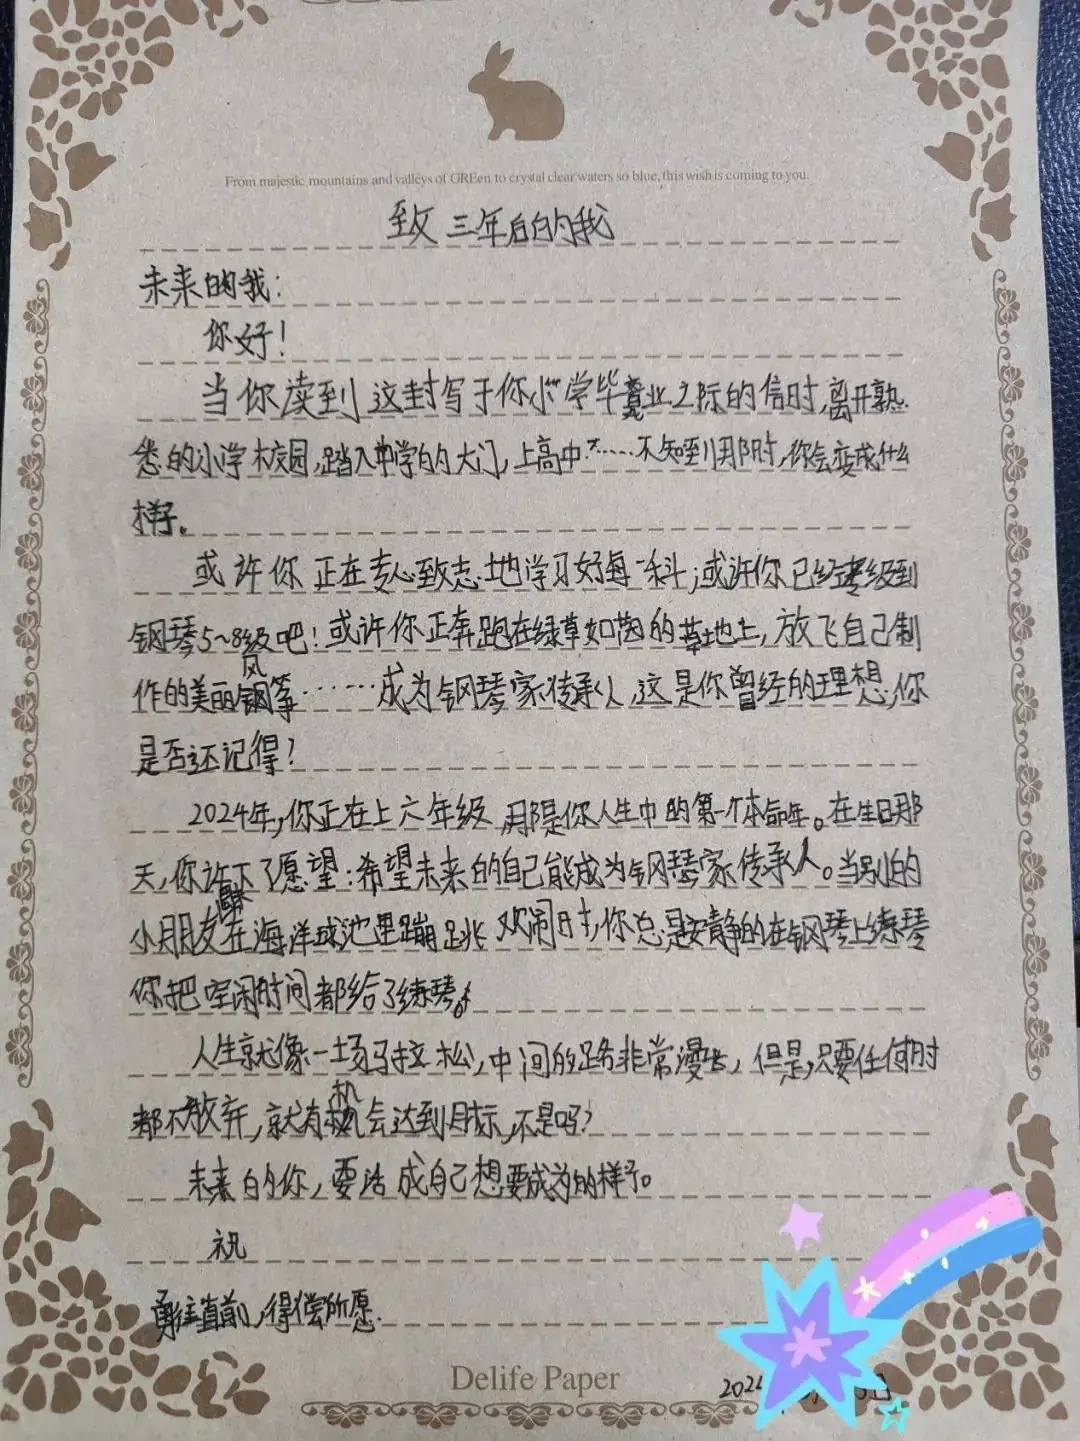 From majestic mountains and valleys of GREen to crystal clear waters so blue, this wish is coming to you.
致三年后的我
未来的我：
你好！
当你读到这封写于你小学毕业之际的信时，离开熟
悉的小学校园，踏入中学的大门，上高中……不知到那时，你会变成什么
样子。
或许你正在专心致志地学习好每一科；或许你已经考级到
钢琴5~8级吧！或许你正奔跑在绿草如茵的草地上，放飞自己制
作的美丽风筝……成为钢琴家传承人，这是你曾经的理想，你
是否还记得？
2024年，你正在上六年级，那是你人生中的第一个本命年。在生日那
天，你许下了愿望：希望未来的自己能成为钢琴家传承人。当别的
小朋友在海洋球池里蹦跳欢闹时，你总是安静的在钢琴上练琴
你把空闲时间都给了练琴。
人生就像一场马拉松，中间的路非常漫长，但是，只要任何时
都不放弃，就有机会达到目标，不是吗？
未来的你，要活成自己想要成为的样子。
祝
勇往直前，得偿所愿.
Delife Paper
202
日